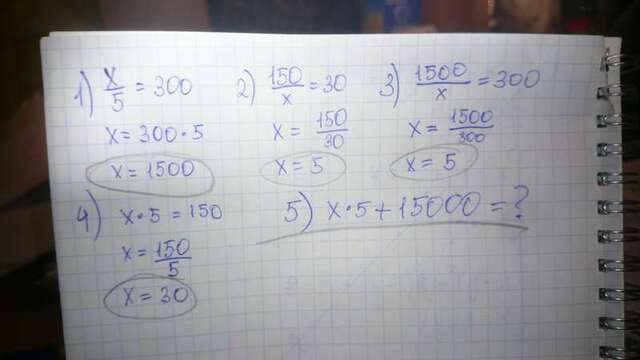 1) x/5 = 300
x = 300 · 5
x = 1500
2) 150/x = 30
x = 150/30
x = 5
3) 1500/x = 300
x = 1500/300
x = 5
4) x · 5 = 150
x = 150/5
x = 30
5) x · 5 + 15000 = ?